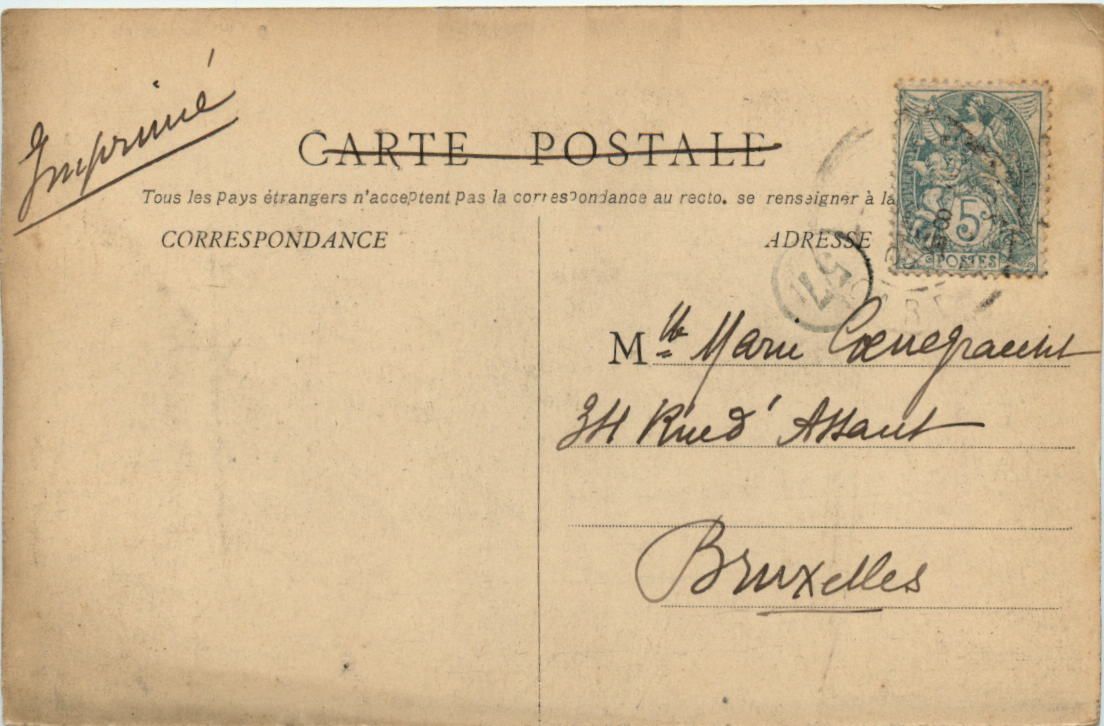 Imprimé
CARTE POSTALE
Tous les pays étrangers n'acceptent pas la correspondance au recto. se renseigner à la
CORRESPONDANCE
ADRESSE
5
POSTES
Mlle Marie
34 Rue d'Assaut
Bruxelles